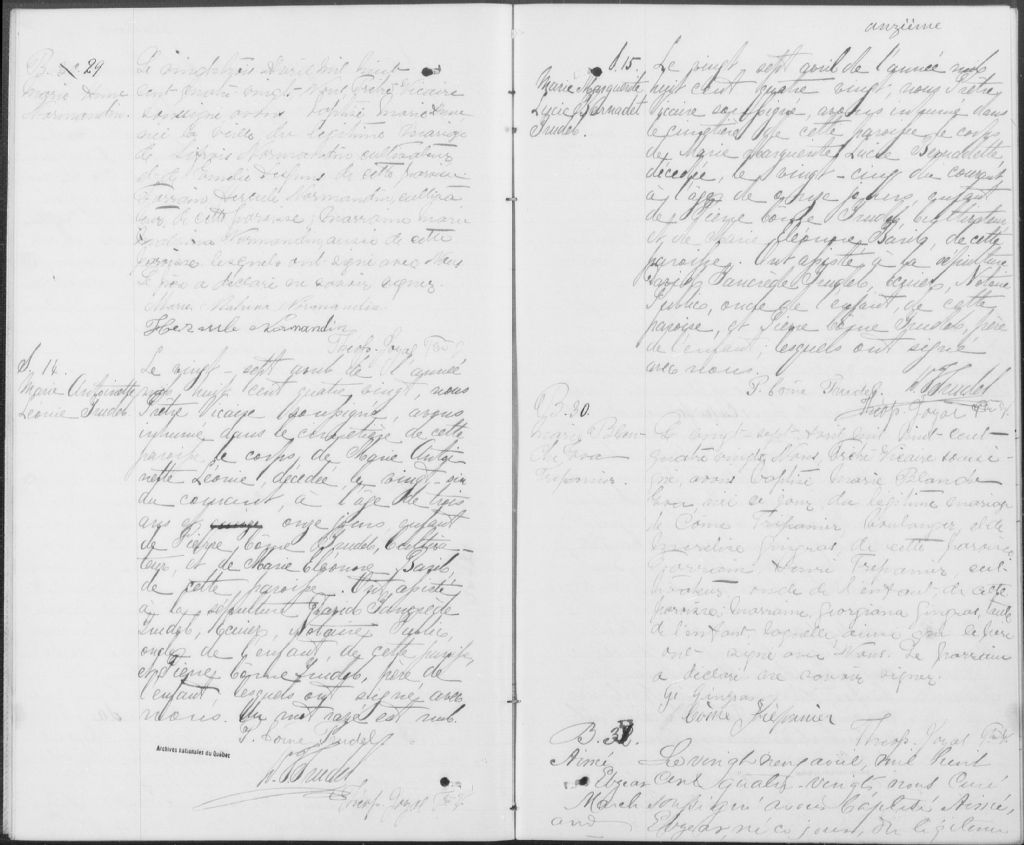 B. 29
Marie Anne
Normandin.
Le vingt trois Avril mil huit
cent quatre vingt, nous Prêtre Vicaire
soussigné avons baptisé Marie Anne
née la veille du légitime mariage
de Normandin cultivateur
et de de cette paroisse
Parrain Hercule Normandin, cultiva
teur de cette paroisse; Marraine Marie
Normandin aussi de cette
paroisse lesquels ont signé avec Nous
Le père a déclaré ne savoir signer.
Marie Normandin
Hercule Normandin
Théop. Joyal Ptre V.
S. 14.
Marie Antoinette
Léonie Trudel.
Le vingt-sept avril de l'année
mil huit cent quatre vingt, nous
Prêtre vicaire soussigné, avons
inhumé dans le cimetière de cette
paroisse le corps de Marie Antoi
nette Léonie, décédée, le vingt-six
du courant, à l'âge de trois
ans et onze jours, enfant
de Pierre Côme Trudel, Cultiva-
teur, et de Marie Eléonore Baril,
de cette paroisse. Ont assisté
à la sépulture David Tancrède
Trudel, Ecuier, Notaire Public,
oncle de l'enfant, de cette paroisse,
et Pierre Côme Trudel, père de
l'enfant lesquels ont signé avec
nous. Un mot rayé est nul.
P. Come Trudel
D. T. Trudel
Théop. Joyal Ptre V.
Archives nationales du Québec
onzième
S. 15.
Marie Marguerite
Lucie Bernadet
Trudel.
Le vingt-sept avril de l'année mil
huit cent quatre vingt, nous Prêtre
vicaire soussigné, avons inhumé dans
le cimetière de cette paroisse le corps
de Marie Marguerite Lucie Bernadette
décédée, le vingt-cinq du courant,
à l'âge de onze jours, enfant
de Pierre Come Trudel, cultivateur
et de Marie Eléonore Baril, de cette
paroisse. Ont assisté à la sépulture
David Tancrède Trudel, écuier, Notaire
Public, oncle de l'enfant, de cette
paroisse, et Pierre Côme Trudel, père
de l'enfant; lesquels ont signé
avec nous.
P. Come Trudel.
D. T. Trudel
Théop. Joyal Ptre V.
B. 30.
Marie Blan-
che
Trépanier.
Le vingt-sept Avril mil huit-cent-
quatre vingt, Nous, Prêtre Vicaire soussi-
gné, avons baptisé Marie Blanche
née ce jour du légitime mariage
de Come Trépanier et de
Gingras, de cette paroisse.
Parrain Henri Trépanier, cul-
tivateur, oncle de l'enfant, de cette
paroisse; Marraine, Georgiana Gingras, tante
de l'enfant, laquelle ainsi que le père
ont signé avec Nous. Le parrain
a déclaré ne savoir signer.
G. Gingras
Côme Trépanier
Théop. Joyal Ptre V.
B. 31.
Aimé
Elzéar
March
and
Le vingt neuf avril, mil huit
cent quatre-vingt, nous Curé
soussigné avons baptisé Aimé,
Elzéar, né ce jour, du légitime